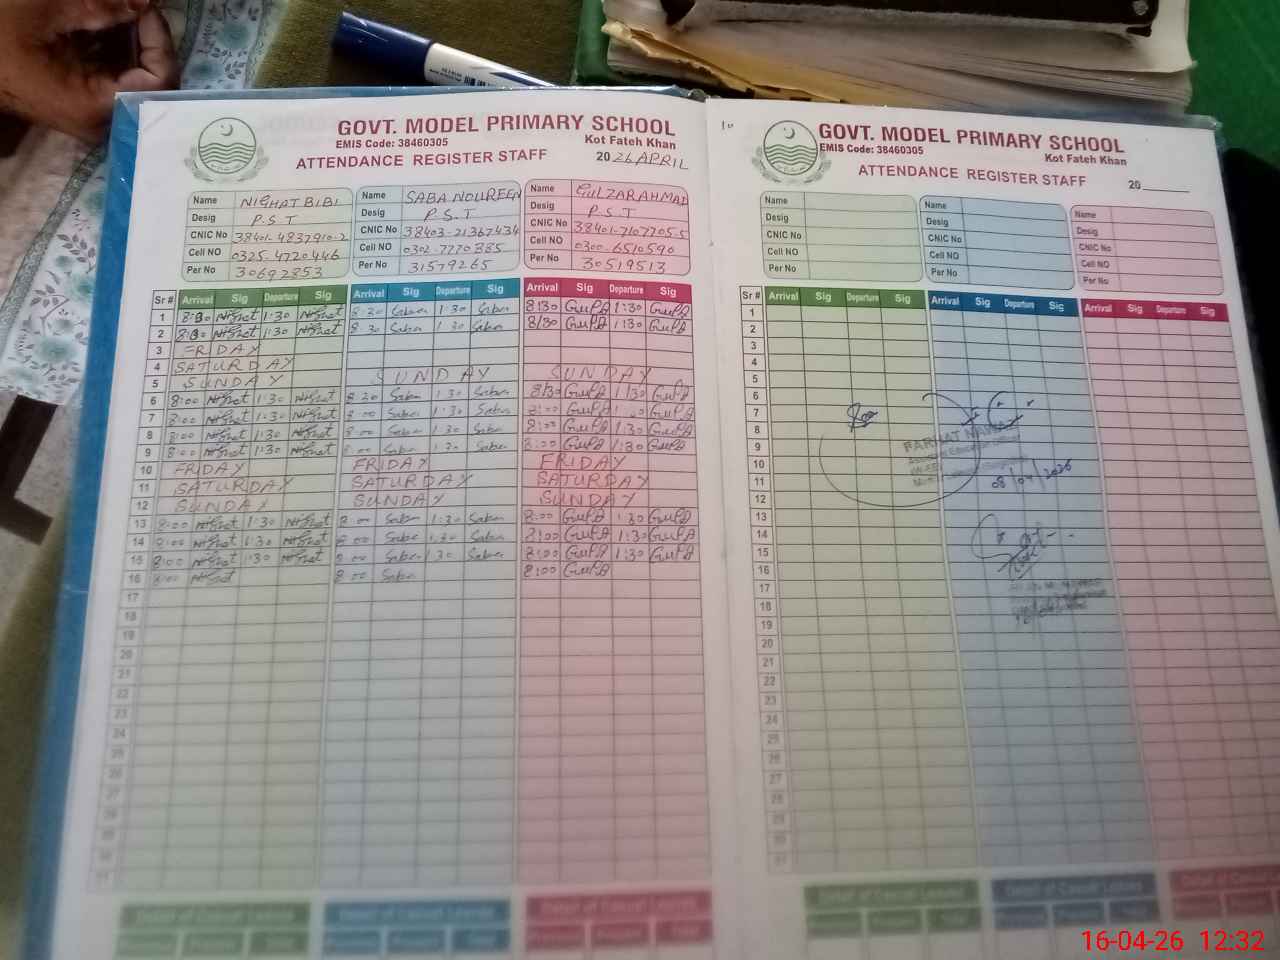 GOVT. MODEL PRIMARY SCHOOL
EMIS Code: 38460305 Kot Fateh Khan
ATTENDANCE REGISTER STAFF 2026 APRIL
Name NIGHAT BIBI Name SABA NOUREEN Name GULZAR AHMAD
Desig P.S.T Desig P.S.T Desig P.S.T
CNIC No 38401-4837910-2 CNIC No 38403-21367434 CNIC No 38401-7107705-5
Cell NO 0325-4720446 Cell NO 0302-7770385 Cell NO 0300-6510590
Per No 30692853 Per No 31579265 Per No 30519513
Sr # Arrival Sig Departure Sig Arrival Sig Departure Sig Arrival Sig Departure Sig
1 8:30 Nighat 1:30 Nighat 8:30 Saba 1:30 Saba 8:30 1:30
2 8:30 Nighat 1:30 Nighat 8:30 Saba 1:30 Saba 8:30 1:30
3 FRIDAY
4 SATURDAY
5 SUNDAY SUNDAY SUNDAY
6 8:00 Nighat 1:30 Nighat Saba 1:30 Saba 8:30 1:30
7 8:00 Nighat 1:30 Nighat 8:00 Saba 1:30 Saba 8:00
8 8:00 Nighat 1:30 Nighat 8:00 Saba 1:30 Saba 8:00 1:30
9 8:00 Nighat 1:30 Nighat 8:00 Saba Saba 8:00 1:30
10 FRIDAY FRIDAY FRIDAY
11 SATURDAY SATURDAY SATURDAY
12 SUNDAY SUNDAY SUNDAY
13 8:00 Nighat 1:30 Nighat 8:00 Saba 1:30 Saba 8:00 1:30
14 8:00 Nighat 1:30 Nighat 8:00 Saba 1:30 Saba 8:00 1:30
15 8:00 Nighat 1:30 Nighat 8:00 Saba 1:30 Saba 8:00 1:30
16 8:00 Nighat 8:00 Saba 8:00
17
18
19
20
21
22
23
24
25
26
27
28
GOVT. MODEL PRIMARY SCHOOL
EMIS Code: 38460305 Kot Fateh Khan
ATTENDANCE REGISTER STAFF 20
Name Name Name
Desig Desig Desig
CNIC No CNIC No CNIC No
Cell NO Cell NO Cell NO
Per No Per No Per No
Sr # Arrival Sig Departure Sig Arrival Sig Departure Sig Arrival Sig Departure Sig
1
2
3
4
5
6
7
8
9
10
11
12
13
14
15
16
17
18
19
20
21
22
23
24
25
26
27
28
FARHAT NAWAZ
08/04/2026
Detail of Casual Leaves Detail of Casual Leaves Detail of Casual Leaves
Detail of Casual Leaves Detail of Casual Leaves
16-04-26 12:32